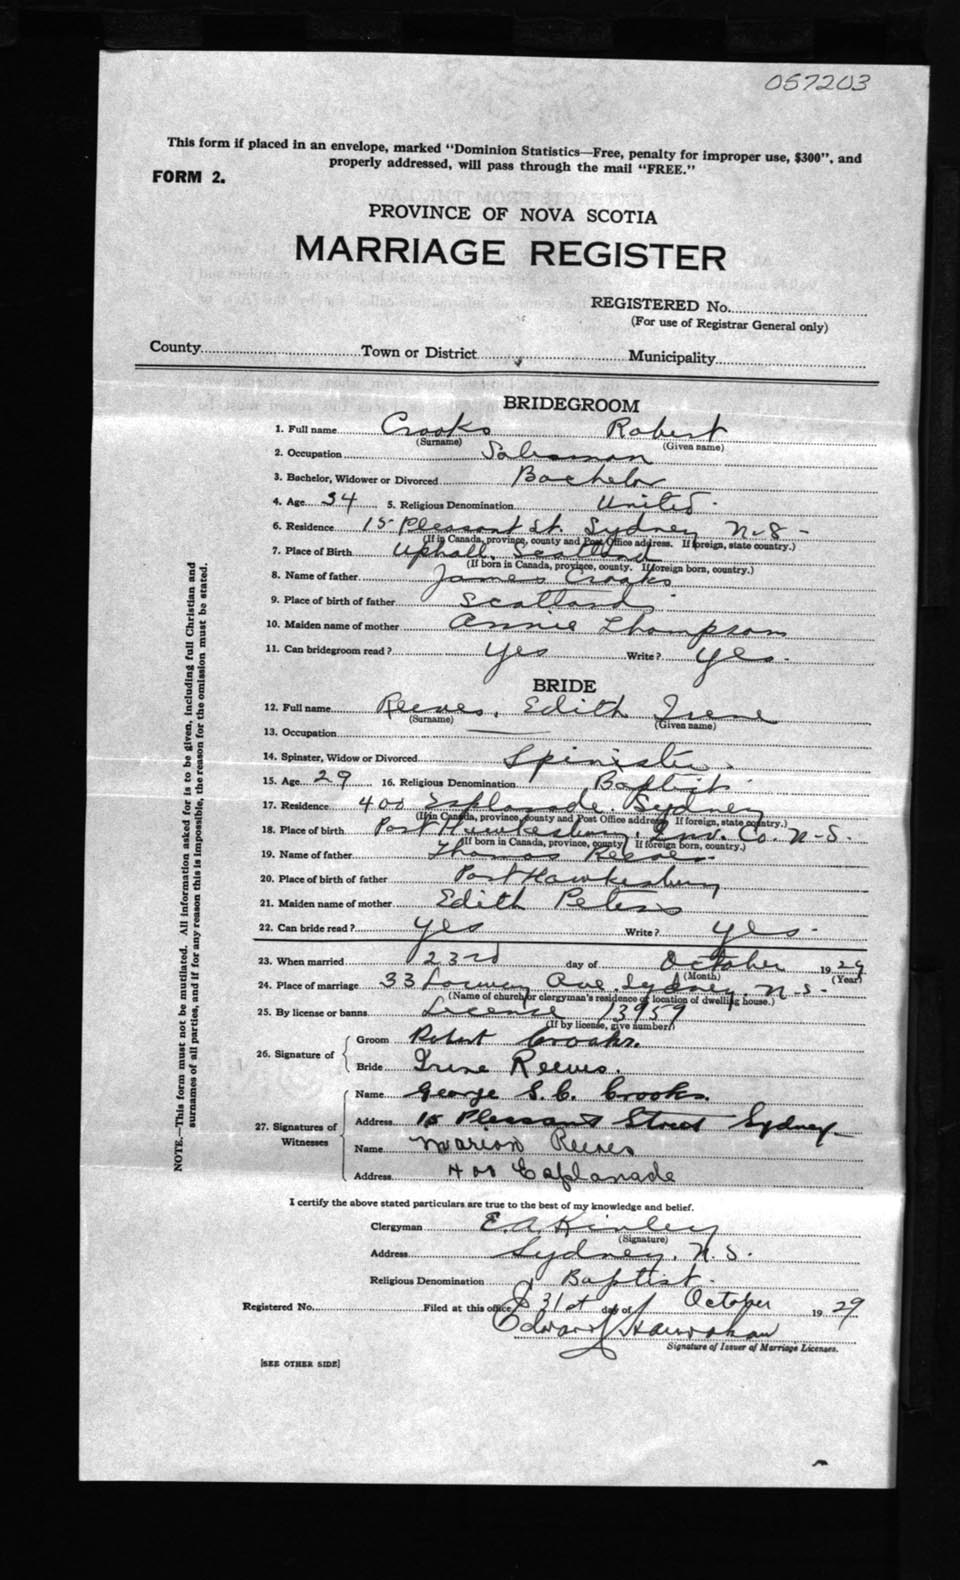 057203
This form if placed in an envelope, marked "Dominion Statistics—Free, penalty for improper use, $300", and
properly addressed, will pass through the mail "FREE."
FORM 2.
PROVINCE OF NOVA SCOTIA
MARRIAGE REGISTER
REGISTERED No.
(For use of Registrar General only)
County Town or District Municipality
BRIDEGROOM
1. Full name Crooks Robert
(Surname) (Given name)
2. Occupation Salesman
3. Bachelor, Widower or Divorced Bachelor
4. Age 34 5. Religious Denomination United.
6. Residence 15 Pleasant St. Sydney N.S-
(If in Canada, province, county and Post Office address. If foreign, state country.)
7. Place of Birth Uphall, Scotland
(If born in Canada, province, county. If foreign born, country.)
8. Name of father James Crooks
9. Place of birth of father Scotland
10. Maiden name of mother Annie Thompson
11. Can bridegroom read? yes Write? yes.
BRIDE
12. Full name Reeves, Edith Irene
(Surname) (Given name)
13. Occupation —
14. Spinster, Widow or Divorced Spinister.
15. Age 29 16. Religious Denomination Baptist
17. Residence 400 Esplanade. Sydney
(If in Canada, province, county and Post Office address. If foreign, state country.)
18. Place of birth Port Hawkesbury, Inv. Co. N-S.
(If born in Canada, province, county. If foreign born, country.)
19. Name of father Thomas Reeves
20. Place of birth of father Port Hawkesbury
21. Maiden name of mother Edith Peters
22. Can bride read? yes Write? yes.
23. When married 23rd day of October 1929
(Month) (Year)
24. Place of marriage 33 Ave. Sydney, N.S.
(Name of church or clergyman's residence or location of dwelling house.)
25. By license or banns License 13959
(If by license, give number)
26. Signature of
Groom Robert Crooks.
Bride Irene Reeves.
27. Signatures of Witnesses
Name George S. C. Crooks.
Address 15 Pleasant Street Sydney
Name Marion Reeves
Address 400 Esplanade
I certify the above stated particulars are true to the best of my knowledge and belief.
Clergyman E.A. Kinley
(Signature)
Address Sydney, N.S.
Religious Denomination Baptist.
Registered No. Filed at this office 31st day of October 1929
Edward
Signature of Issuer of Marriage Licenses.
[SEE OTHER SIDE]
NOTE.—This form must not be mutilated. All information asked for is to be given, including full Christian and
surnames of all parties, and if for any reason this is impossible, the reason for the omission must be stated.